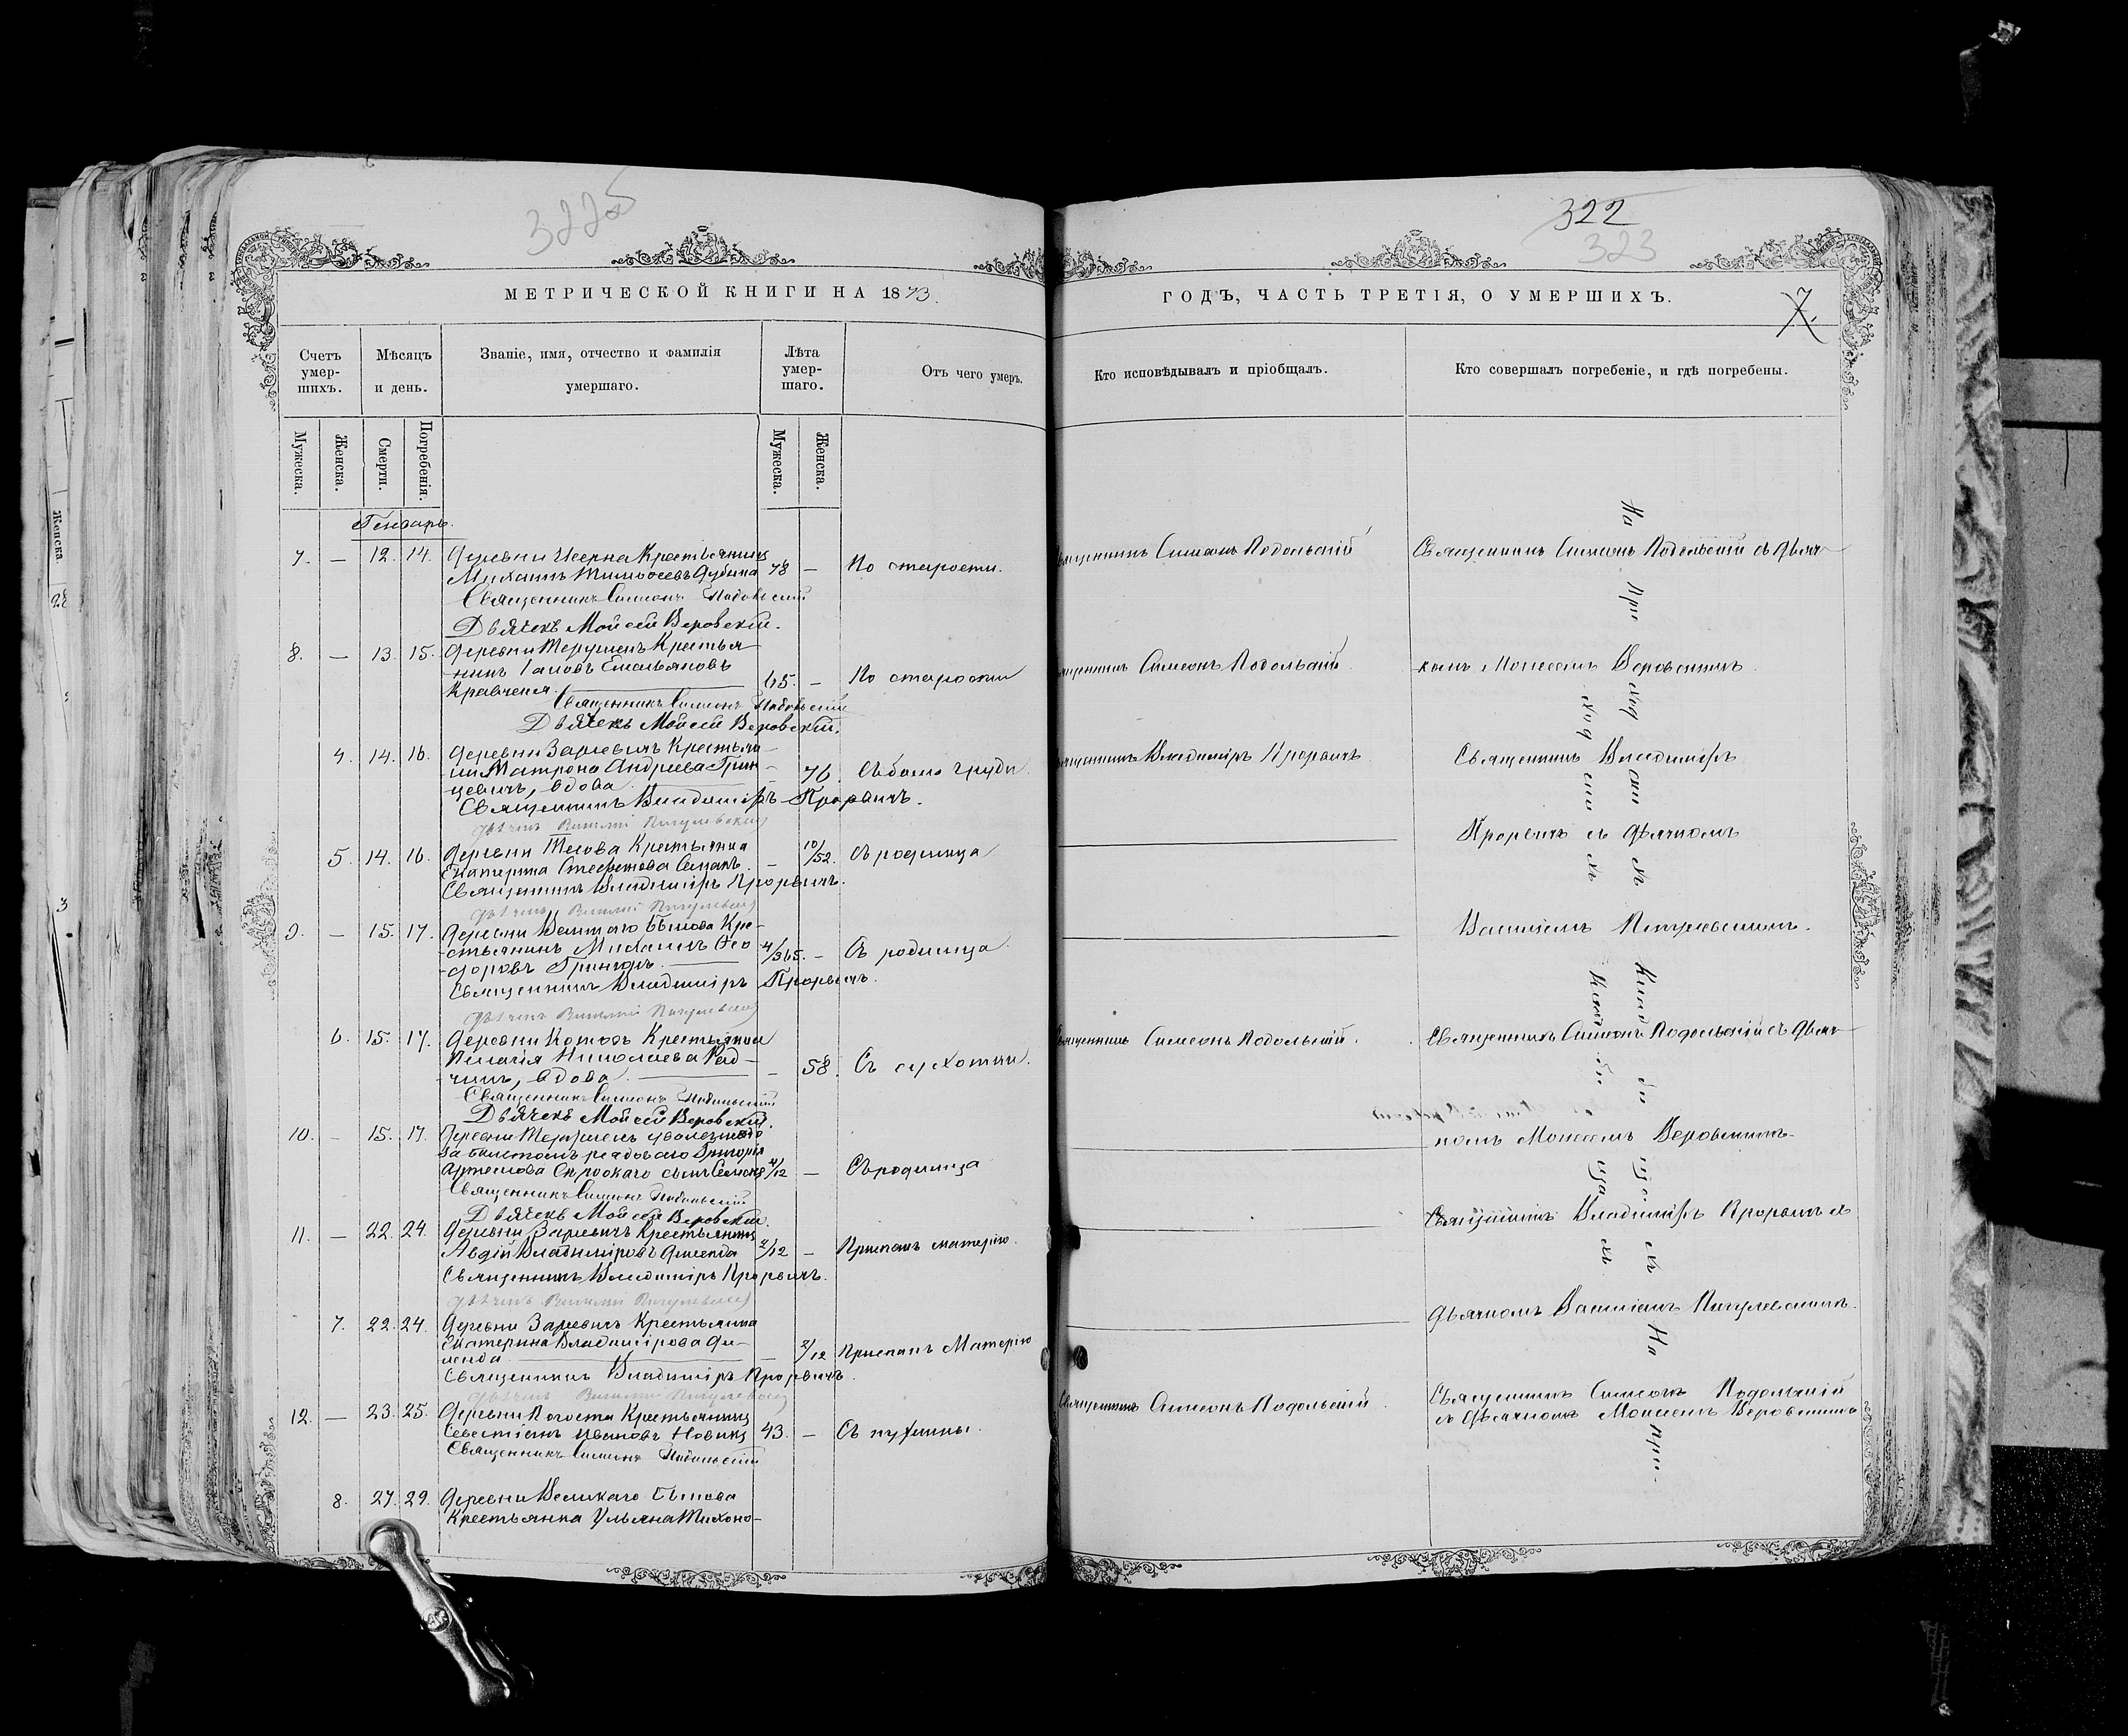 322об
322
323
7.
МЕТРИЧЕСКОЙ КНИГИ НА 1873.
ГОДЪ, ЧАСТЬ ТРЕТІЯ, О УМЕРШИХЪ.
Счетъ умер-шихъ.
Мѣсяцъ и день.
Званіе, имя, отчество и фамилія умершаго.
Лѣта умер-шаго.
Отъ чего умеръ.
Кто исповѣдывалъ и пріобщалъ.
Кто совершалъ погребеніе, и гдѣ погребены.
Мужеска.
Женска.
Смерти.
Погребенія.
Мужеска.
Женска.
Генварь.
7. — 12. 14. Деревни Крестьянинъ
Михаилъ Тимофеевъ Дубина 78 — По старости. Священникъ Симеонъ Подольскій Священникъ Симеонъ Подольскій съ дьяч-
Священникъ Симеонъ Подольскій
Дьячекъ Мойсей Веровскій.
8. — 13. 15. Деревни Крестья-
нинъ Емельяновъ
65. — По старости Священникъ Симеонъ Подольскій. комъ Моисеемъ Веровскимъ.
Священникъ Симеонъ Подольскій
Дьячекъ Мойсей Веровскій.
4. 14. 16. Деревни Заречичъ Крестьян-
ка Матрона Андреева Грин-
цевичъ, вдова — 76. Съ боли груди. Священникъ Владиміръ Прорвичъ Священникъ Владиміръ
Священникъ Владиміръ Прорвичъ.
Дьячекъ Василій Пигулевскій
Прорвичъ съ дьячкомъ
5. 14. 16. Деревни Крестьянка
Екатерина Стефанова — 10/52. Съ родимца
Священникъ Владиміръ Прорвичъ.
Дьячекъ Василій Пигулевскій
Василіемъ Пигулевскимъ.
9. — 15. 17. Деревни Великаго Кре-
стьянинъ Михаилъ Фео-
доровъ 4/365. — Съ родимца.
Священникъ Владиміръ Прорвичъ.
Дьячекъ Василій Пигулевскій
6. 15. 17. Деревни Крестьянка
Пелагія Николаева Рад-
чикъ, вдова. — 58. Съ сухотки. Священникъ Симеонъ Подольскій. Священникъ Симеонъ Подольскій съ дьяч-
Священникъ Симеонъ Подольскій
Дьячекъ Мойсей Веровскій.
10. — 15. 17. Деревни уволеннаго
за билетомъ рядоваго Григорія
Артемова сынъ 4/12 — Съ родимца комъ Моисеемъ Веровскимъ.
Священникъ Симеонъ Подольскій
Дьячекъ Мойсей Веровскій.
11. — 22. 24. Деревни Заречичъ Крестьянинъ
Авдій Владиміровъ 2/12 — Приспанъ матерію. Священникъ Владиміръ Прорвичъ съ
Священникъ Владиміръ Прорвичъ.
Дьячекъ Василій Пигулевскій
7. 22. 24. Деревни Заречичъ Крестьянка
Екатерина Владимірова
— 2/12 Приспанъ Матерію дьячкомъ Василіемъ Пигулевскимъ.
Священникъ Владиміръ Прорвичъ.
Дьячекъ Василій Пигулевскій
12. — 23. 25. Деревни Погоста Крестьянинъ
Севастіанъ Ивановъ Новикъ 43. — Съ пухлины. Священникъ Симеонъ Подольскій. Священникъ Симеонъ Подольскій
съ дьячкомъ Моисеемъ Веровскимъ
Священникъ Симеонъ Подольскій
8. 27. 29. Деревни Великаго
Крестьянка Ульяна Тихоно-
На приходскихъ кладбищахъ. На при-
ходскихъ кладбищахъ.